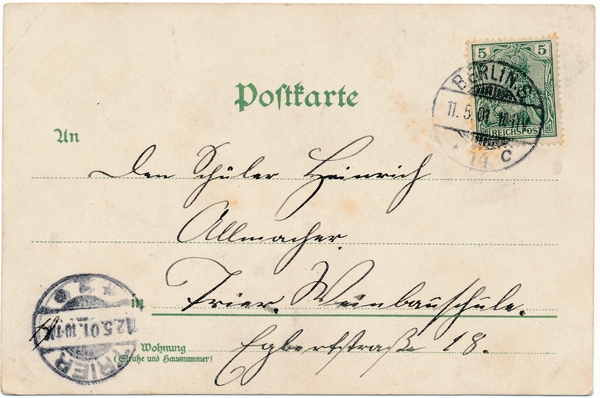 5 5
REICHSPOST
BERLIN.S.
11.5.01.
14 c
Postkarte
An
Den Schüler Heinrich
Allmacher.
in Trier. Weinbauschule.
Wohnung
(Straße und Hausnummer)
Egbertstraße 18.
TRIER
12.5.01.
* 2 *